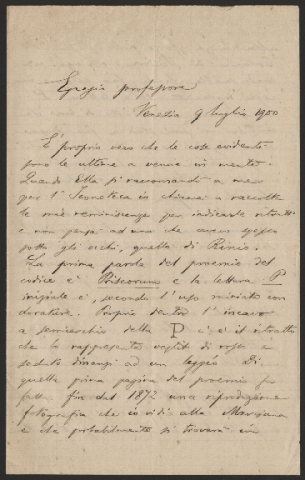 Egregio professore
Venezia 9 luglio 1900
È proprio vero che le cose evidenti
sono le ultime a venire in mente.
Quando Ella si raccomandò a me
per l'Iconoteca io chiamai a raccolta
le mie reminiscenze per indicarle ritratti
e non pensai ad uno che avevo spesso
sotto gli occhi, quello di
La prima parola del proemio del
codice è Priscorum e la lettera P
iniziale è, secondo l'uso miniata con
dorature. Proprio dentro l'incavo
a semicerchio della P c'è il ritratto
che lo rappresenta vestito di rosso e
seduto dinanzi ad un leggio. Di
quella prima pagina del proemio fu
fatta fin dal 1872 una riproduzione
fotografica che io vidi alla Marciana
e che probabilmente si troverà in